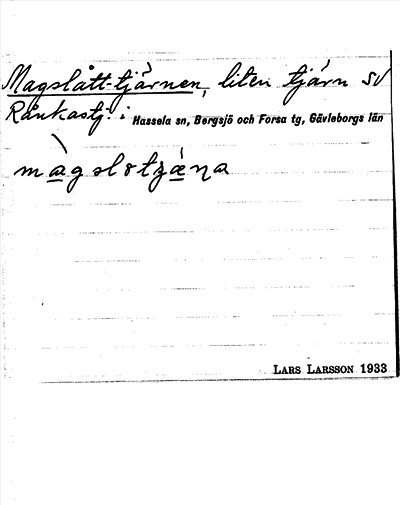 Magslått-tjärnen, liten tjärn SV
Rånkastj. i Hassela sn, Bergsjö och Forsa tg, Gävleborgs län
màgslotʒǽɳa
LARS LARSSON 1933